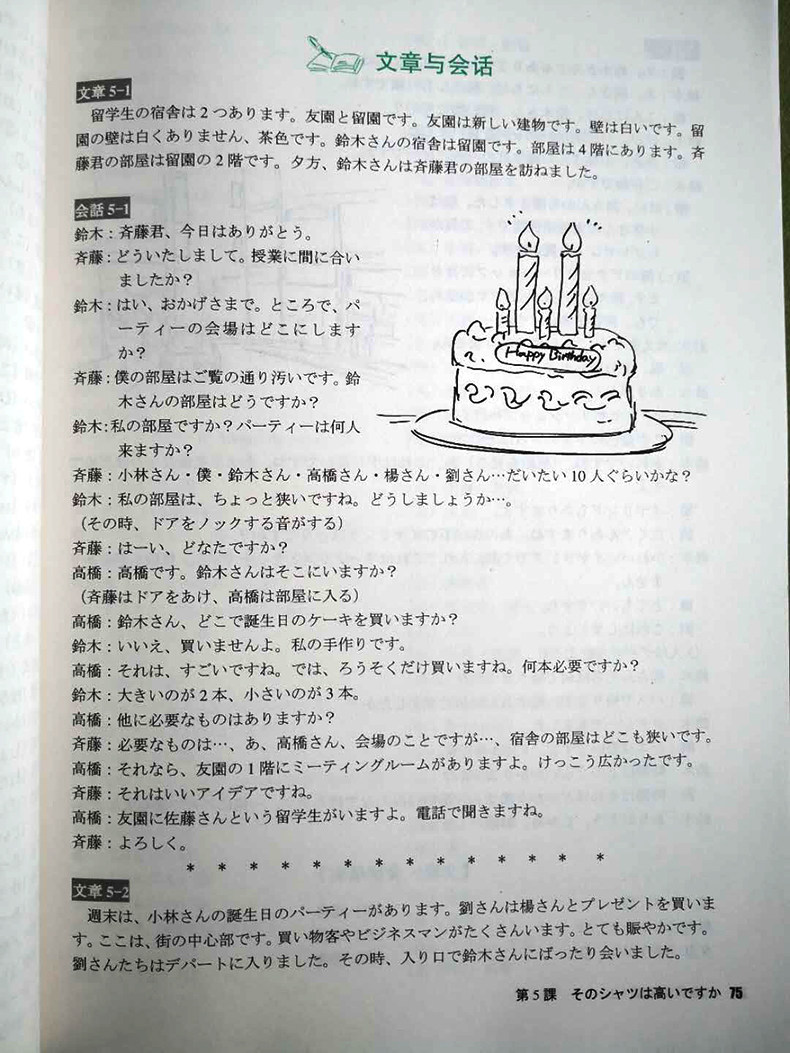 文章与会话
文章 5-1
留学生の宿舎は2つあります。友園と留園です。友園は新しい建物です。壁は白いです。留
園の壁は白くありません、茶色です。鈴木さんの宿舎は留園です。部屋は4階にあります。斉
藤君の部屋は留園の2階です。夕方、鈴木さんは斉藤君の部屋を訪ねました。
会話 5-1
鈴木：斉藤君、今日はありがとう。
斉藤：どういたしまして。授業に間に合い
ましたか？
鈴木：はい、おかげさまで。ところで、パ
ーティーの会場はどこにします
か？
斉藤：僕の部屋はご覧の通り汚いです。鈴
木さんの部屋はどうですか？
鈴木：私の部屋ですか？パーティーは何人
来ますか？
Happy Birthday
斉藤：小林さん・僕・鈴木さん・高橋さん・楊さん・劉さん…だいたい10人ぐらいかな？
鈴木：私の部屋は、ちょっと狭いですね。どうしましょうか…。
（その時、ドアをノックする音がする）
斉藤：はーい、どなたですか？
高橋：高橋です。鈴木さんはそこにいますか？
（斉藤はドアをあけ、高橋は部屋に入る）
高橋：鈴木さん、どこで誕生日のケーキを買いますか？
鈴木：いいえ、買いませんよ。私の手作りです。
高橋：それは、すごいですね。では、ろうそくだけ買いますね。何本必要ですか？
鈴木：大きいのが2本、小さいのが3本。
高橋：他に必要なものはありますか？
斉藤：必要なものは…、あ、高橋さん、会場のことですが…、宿舎の部屋はどこも狭いです。
高橋：それなら、友園の1階にミーティングルームがありますよ。けっこう広かったです。
斉藤：それはいいアイデアですね。
高橋：友園に佐藤さんという留学生がいますよ。電話で聞きますね。
斉藤：よろしく。
* * * * * * * * * * * * * *
文章 5-2
週末は、小林さんの誕生日のパーティーがあります。劉さんは楊さんとプレゼントを買いま
す。ここは、街の中心部です。買い物客やビジネスマンがたくさんいます。とても賑やかです。
劉さんたちはデパートに入りました。その時、入り口で鈴木さんにばったり会いました。
第5課 そのシャツは高いですか 75